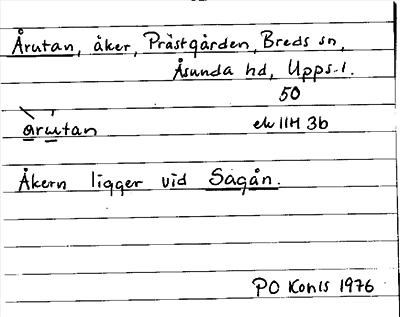 Årutan, åker, Prästgården, Breds sn,
Åsunda hd, Upps. l.
50
àrútan
ek 11H 3b
Åkern ligger vid Sagån.
PO Konis 1976